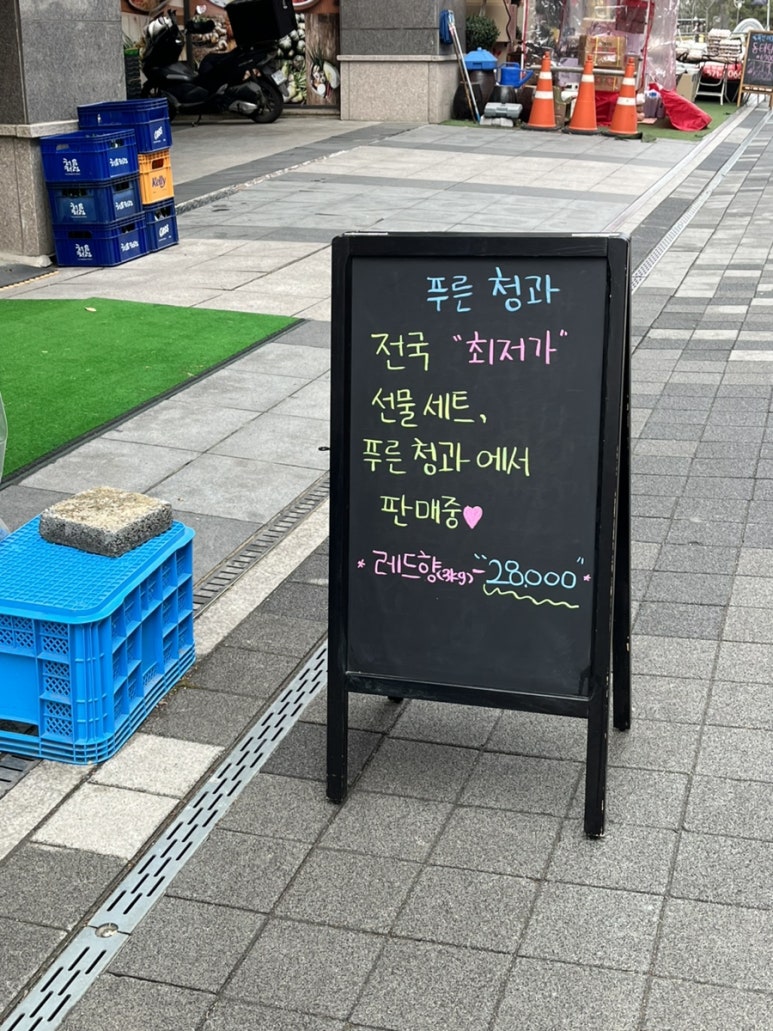 푸른 청과
전국 "최저가"
선물세트,
푸른청과에서
판매중♥
*레드향(3kg)-"28,000"*
Kelly